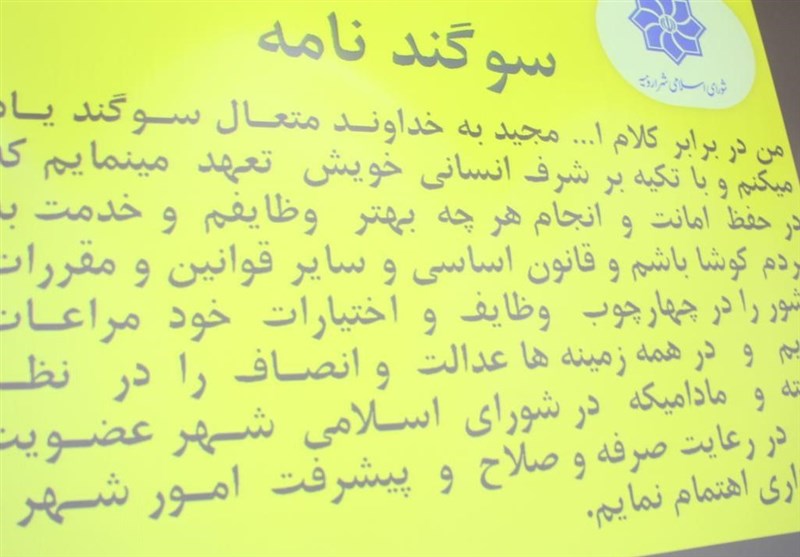 سوگند نامه
شورای اسلامی شهر ارومیه
من در برابر کلام ا... مجید به خداوند متعال سوگند یاد
میکنم و با تکیه بر شرف انسانی خویش تعهد مینمایم که
در حفظ امانت و انجام هر چه بهتر وظایفم و خدمت به
ردم کوشا باشم و قانون اساسی و سایر قوانین و مقررات
شور را در چهارچوب وظایف و اختیارات خود مراعات
یم و در همه زمینه ها عدالت و انصاف را در نظر
ته و مادامیکه در شورای اسلامی شهر عضویت
در رعایت صرفه و صلاح و پیشرفت امور شهر
اری اهتمام نمایم.